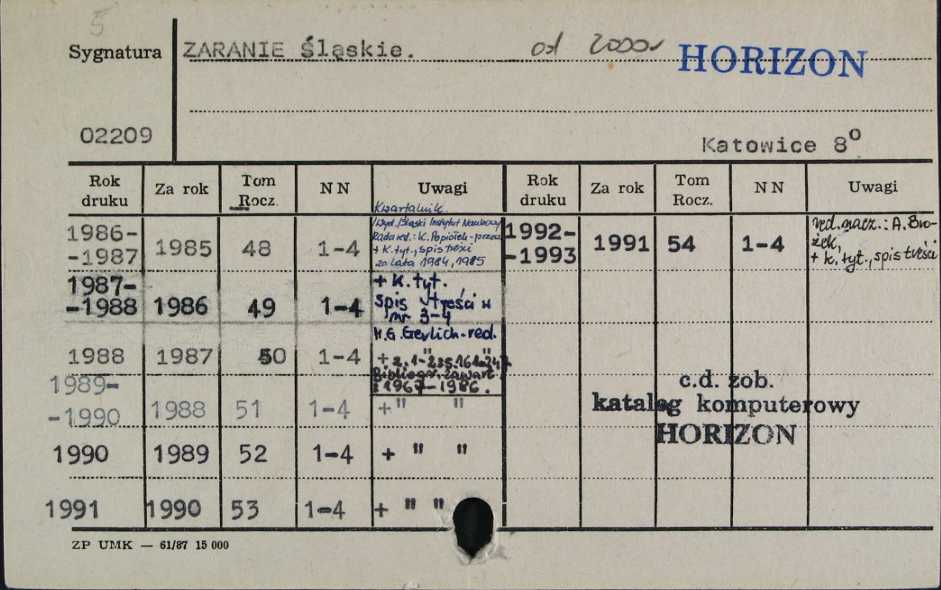 5
Sygnatura ZARANIE Śląskie. od 2000r HORIZON
02209 Katowice 8°
Rok druku Za rok Tom Rocz. NN Uwagi Rok druku Za rok Tom Rocz. NN Uwagi
1986-
-1987 1985 48 1-4
Kwartalnik
Wyd. Śląski Instytut Naukowy
Rada red.: K. Popiołek-przew.
+ K. tyt., spis treści
za lata 1984, 1985
1992-
-1993 1991 54 1-4
red. nacz.: A. Bro-
żek,
+ k. tyt., spis treści
1987-
-1988 1986 49 1-4
+ k. tyt.
spis treści w
nr 3-4
H.G. Gerlich-red.
1988 1987 50 1-4 + " "
Bibliogr. zawart.
z 1967-1986.
1989-
-1990 1988 51 1-4 + " "
c.d. zob.
katalog komputerowy
HORIZON
1990 1989 52 1-4 + " "
1991 1990 53 1-4 + " "
ZP UMK — 61/87 15 000